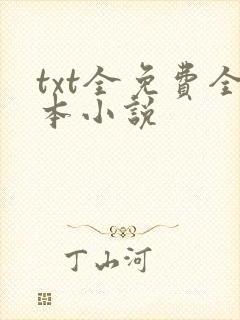 txt全免費全
本小說
丁山河